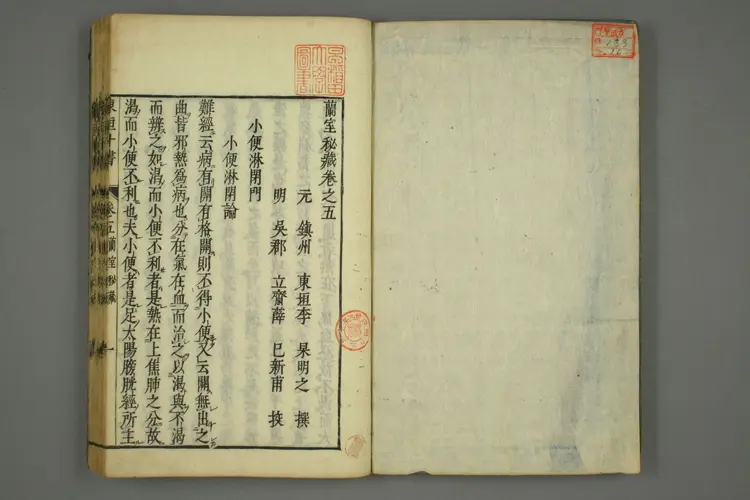 蘭室秘藏卷之五
元 鎮州 東垣李 杲明之 撰
明 吳郡 立齋薛 已新甫 挍
小便淋閉門
小便淋閉論
難經云病有關有格關則不得小便又云關無出之
曲皆邪熱爲病也分在氣在血而治之以渴與不渴
而辨之如渴而小便不利者是熱在上焦肺之分故
渴而小便不利也夫小便者是足太陽膀胱經所主
東垣十書
卷五蘭室秘藏
一